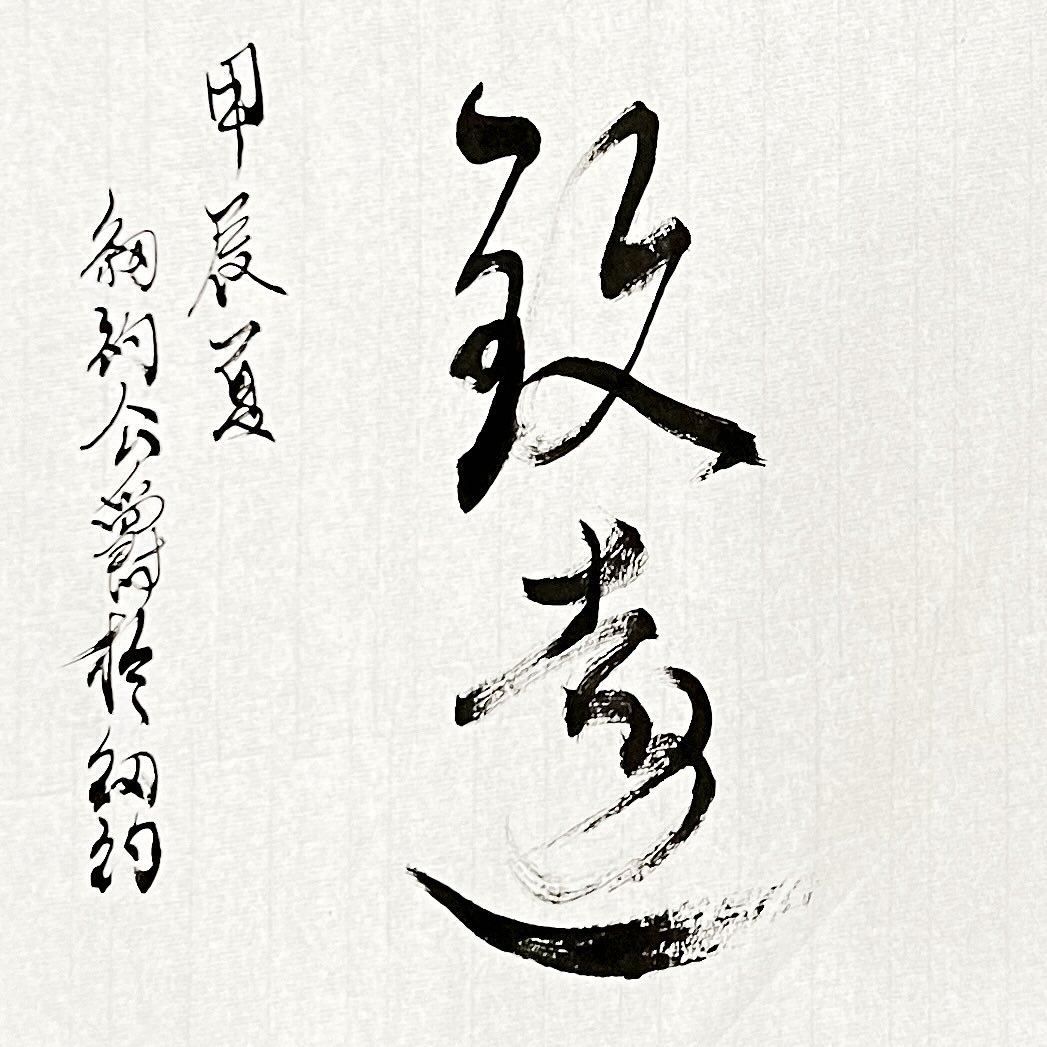 致遠
甲辰夏
紐約公爵於紐約